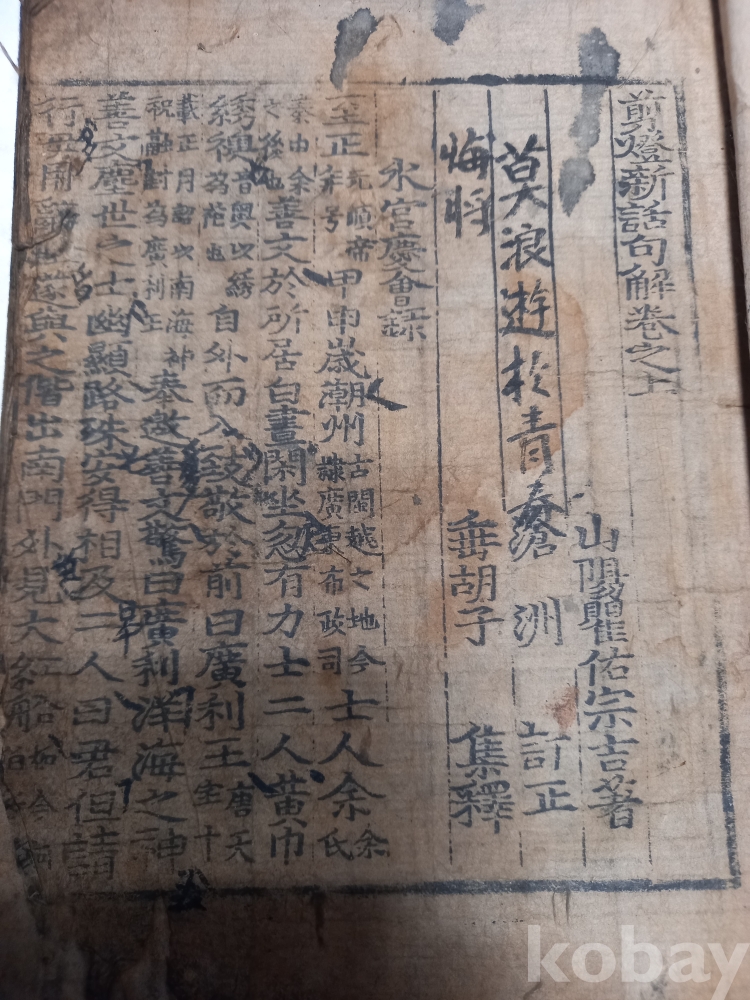 剪燈新話句解卷之上
山陽瞿佑宗吉著
滄洲 訂正
垂胡子 集釋
莫浪遊於青春
悔將
水宮慶會錄
至正元順帝年号甲申歲潮州古閩越之地今隷廣東布政司士人余余氏
秦由余之後也善文於所居白晝閑坐忽有力士二人黃巾
綉襖昔奧次綉為花也自外而入致敬於前曰廣利王唐天宝十
載正月詔次南海神祝融封為廣利王奉邀善文驚曰廣利洋海之神
善文塵世之士幽顯路殊安得相及二人曰君但請
行毋用辭遂與之偕出南門外見大紅船
kobay